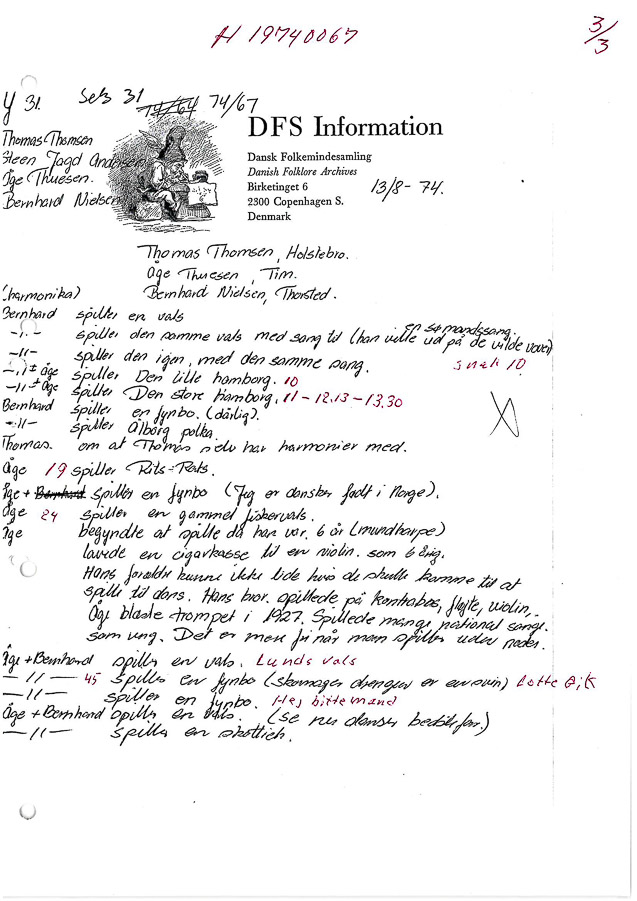 H 19740067
3/3
y 31. Seb 31 74/64 74/67
Thomas Thomsen
Steen Jagd Andersen
Åge Thuesen.
Bernhard Nielsen
DFS Information
Dansk Folkemindesamling
Danish Folklore Archives
Birketinget 6
2300 Copenhagen S.
Denmark
13/8-74.
Thomas Thomsen, Holstebro.
Åge Thuesen, Tim.
(harmonika) Bernhard Nielsen, Thorsted.
Bernhard spiller en vals
en sømandssang.
-"- spiller den samme vals med sang til (han ville ud på de vilde vover)
-"- spiller den igen, med den samme sang. snak 10.
-"- + Åge spiller Den lille hamborg. 10
-"- + Åge spiller Den store hamborg. 11-12.13-13.30
Bernhard spiller en fynbo. (dårlig).
-"- spiller Ålborg polka.
Thomas. om at Thomas selv har harmonier med.
Åge 19 spiller Rits-Rats.
Åge + Bernhard spiller en fynbo (Jeg er dansker født i Norge).
Åge 24 spiller en gammel fiskervals.
Åge begyndte at spille da han var 6 år (mundharpe)
lavede en cigarkasse til en violin. som 6 årig.
Hans forældre kunne ikke lide hvis de skulle komme til at
spille til dans. Hans bror spillede på kontrabas, fløjte, violin,
Åge blæste trompet i 1927. Spillede mange national sange.
som ung. Det er mere fri når man spiller uden noder.
Åge + Bernhard spiller en vals. Lunds vals
-"- 45 spiller en fynbo (skomager drengen er en svin) Lotte Eik
-"- spiller en fynbo. Hej bitte mand
Åge + Bernhard spiller en vals. (Se nu danser bedstefar.)
-"- spiller en skottich.